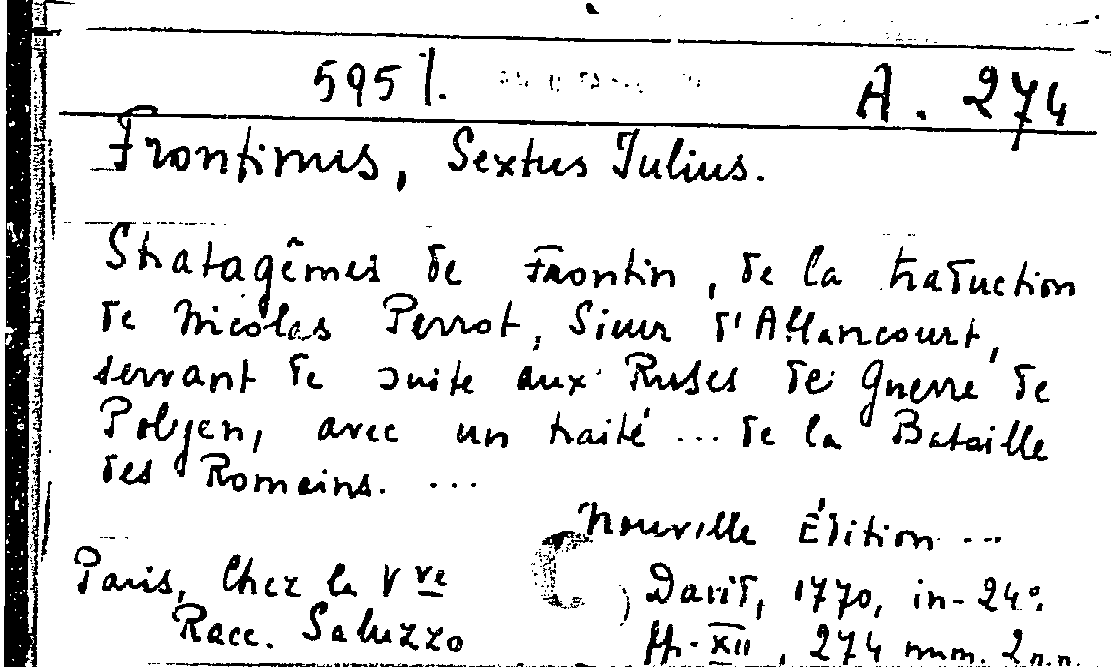 595 /. A. 274
Frontinus, Sextus Iulius.
Stratagêmes de Frontin, de la traduction
de Nicolas Perrot, Sieur d'Ablancourt,
servant de suite aux Ruses de Guerre de
Polyen, avec un traité ... de la Bataille
des Romains. ...
Nouvelle Édition ...
Paris, Chez la Vve David, 1770, in-24°.
Racc. Saluzzo pp. XII, 274 num. 2 n.n.